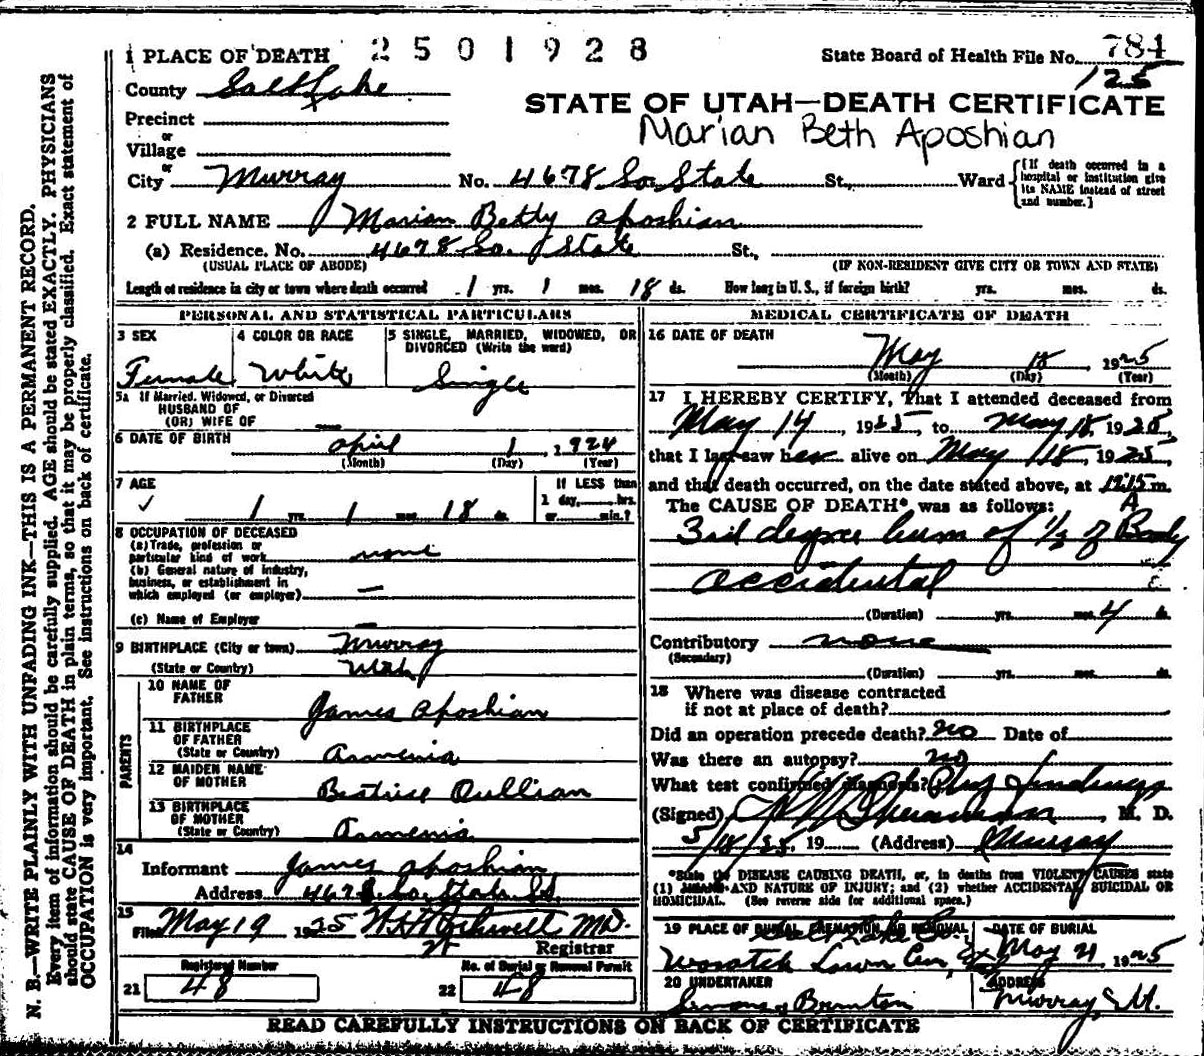 1 PLACE OF DEATH 2501928 State Board of Health File No. 784
125
County Salt Lake
STATE OF UTAH—DEATH CERTIFICATE
Precinct
or
Marian Beth Aposhian
Village
or
City Murray No. 4678 So. State St., Ward [If death occurred in a hospital or institution give its NAME instead of street and number.]
2 FULL NAME Marian Betty Aposhian
(a) Residence. No. 4678 So. State St.,
(USUAL PLACE OF ABODE) (IF NON-RESIDENT GIVE CITY OR TOWN AND STATE)
Length of residence in city or town where death occurred 1 yrs. 1 mos. 18 ds. How long in U. S., if foreign birth? yrs. mos. ds.
PERSONAL AND STATISTICAL PARTICULARS
3 SEX 4 COLOR OR RACE 5 SINGLE, MARRIED, WIDOWED, OR DIVORCED (Write the word)
Female White Single
5a If Married, Widowed, or Divorced
HUSBAND OF
(OR) WIFE OF
6 DATE OF BIRTH April 1, 1924
(Month) (Day) (Year)
7 AGE If LESS than
1 yrs. 1 mos. 18 ds. 1 day, hrs.
or min.?
8 OCCUPATION OF DECEASED
(a) Trade, profession or
particular kind of work none
(b) General nature of industry,
business, or establishment in
which employed (or employer) —
(c) Name of Employer —
9 BIRTHPLACE (City or town) Murray
(State or Country) Utah
PARENTS
10 NAME OF
FATHER James Aposhian
11 BIRTHPLACE
OF FATHER
(State or Country) Armenia
12 MAIDEN NAME
OF MOTHER Beatrice
13 BIRTHPLACE
OF MOTHER
(State or Country) Armenia
14
Informant James Aposhian
Address 4678 So. State St.
15
Filed May 19 1925 MD.
Registrar
Registered Number No. of Burial or Removal Permit
21 48 22 48
MEDICAL CERTIFICATE OF DEATH
16 DATE OF DEATH
May 18 1925
(Month) (Day) (Year)
17 I HEREBY CERTIFY, That I attended deceased from
May 14, 1925, to May 18, 1925,
that I last saw her alive on May 18, 1925,
and that death occurred, on the date stated above, at 12:15 m.
A
The CAUSE OF DEATH* was as follows:
3rd degree burn of 1/2 of Body
accidental
(Duration) yrs. mos. 4 ds.
Contributory none
(Secondary)
(Duration) yrs. mos. ds.
18 Where was disease contracted
if not at place of death?
Did an operation precede death? no Date of
Was there an autopsy? no
What test confirmed diagnosis? Phys findings
(Signed) , M. D.
5/18/25, 19 (Address) Murray
*State the DISEASE CAUSING DEATH, or, in deaths from VIOLENT CAUSES state
(1) MEANS AND NATURE OF INJURY; and (2) whether ACCIDENTAL, SUICIDAL OR
HOMICIDAL. (See reverse side for additional space.)
19 PLACE OF BURIAL, CREMATION OR REMOVAL DATE OF BURIAL
Salt Lake Co.
Wasatch Lawn Cem, May 21, 1925
20 UNDERTAKER ADDRESS
Murray, Ut.
READ CAREFULLY INSTRUCTIONS ON BACK OF CERTIFICATE
N. B.—WRITE PLAINLY WITH UNFADING INK—THIS IS A PERMANENT RECORD.
Every item of information should be carefully supplied. AGE should be stated EXACTLY. PHYSICIANS
should state CAUSE OF DEATH in plain terms, so that it may be properly classified. Exact statement of
OCCUPATION is very important. See instructions on back of certificate.